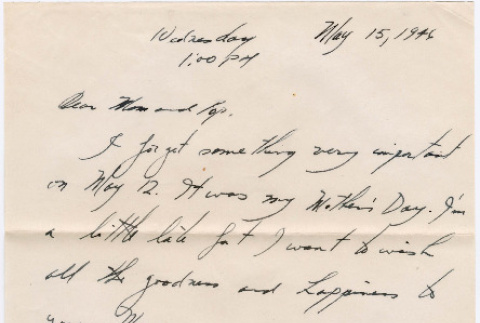 Wednesday May 15, 1946
1:00 PM
Dear Mom and Pop.
I forgot something very important
on May 12. It was my Mother's Day. I'm
a little late but I want to wish
all the goodness and happiness to